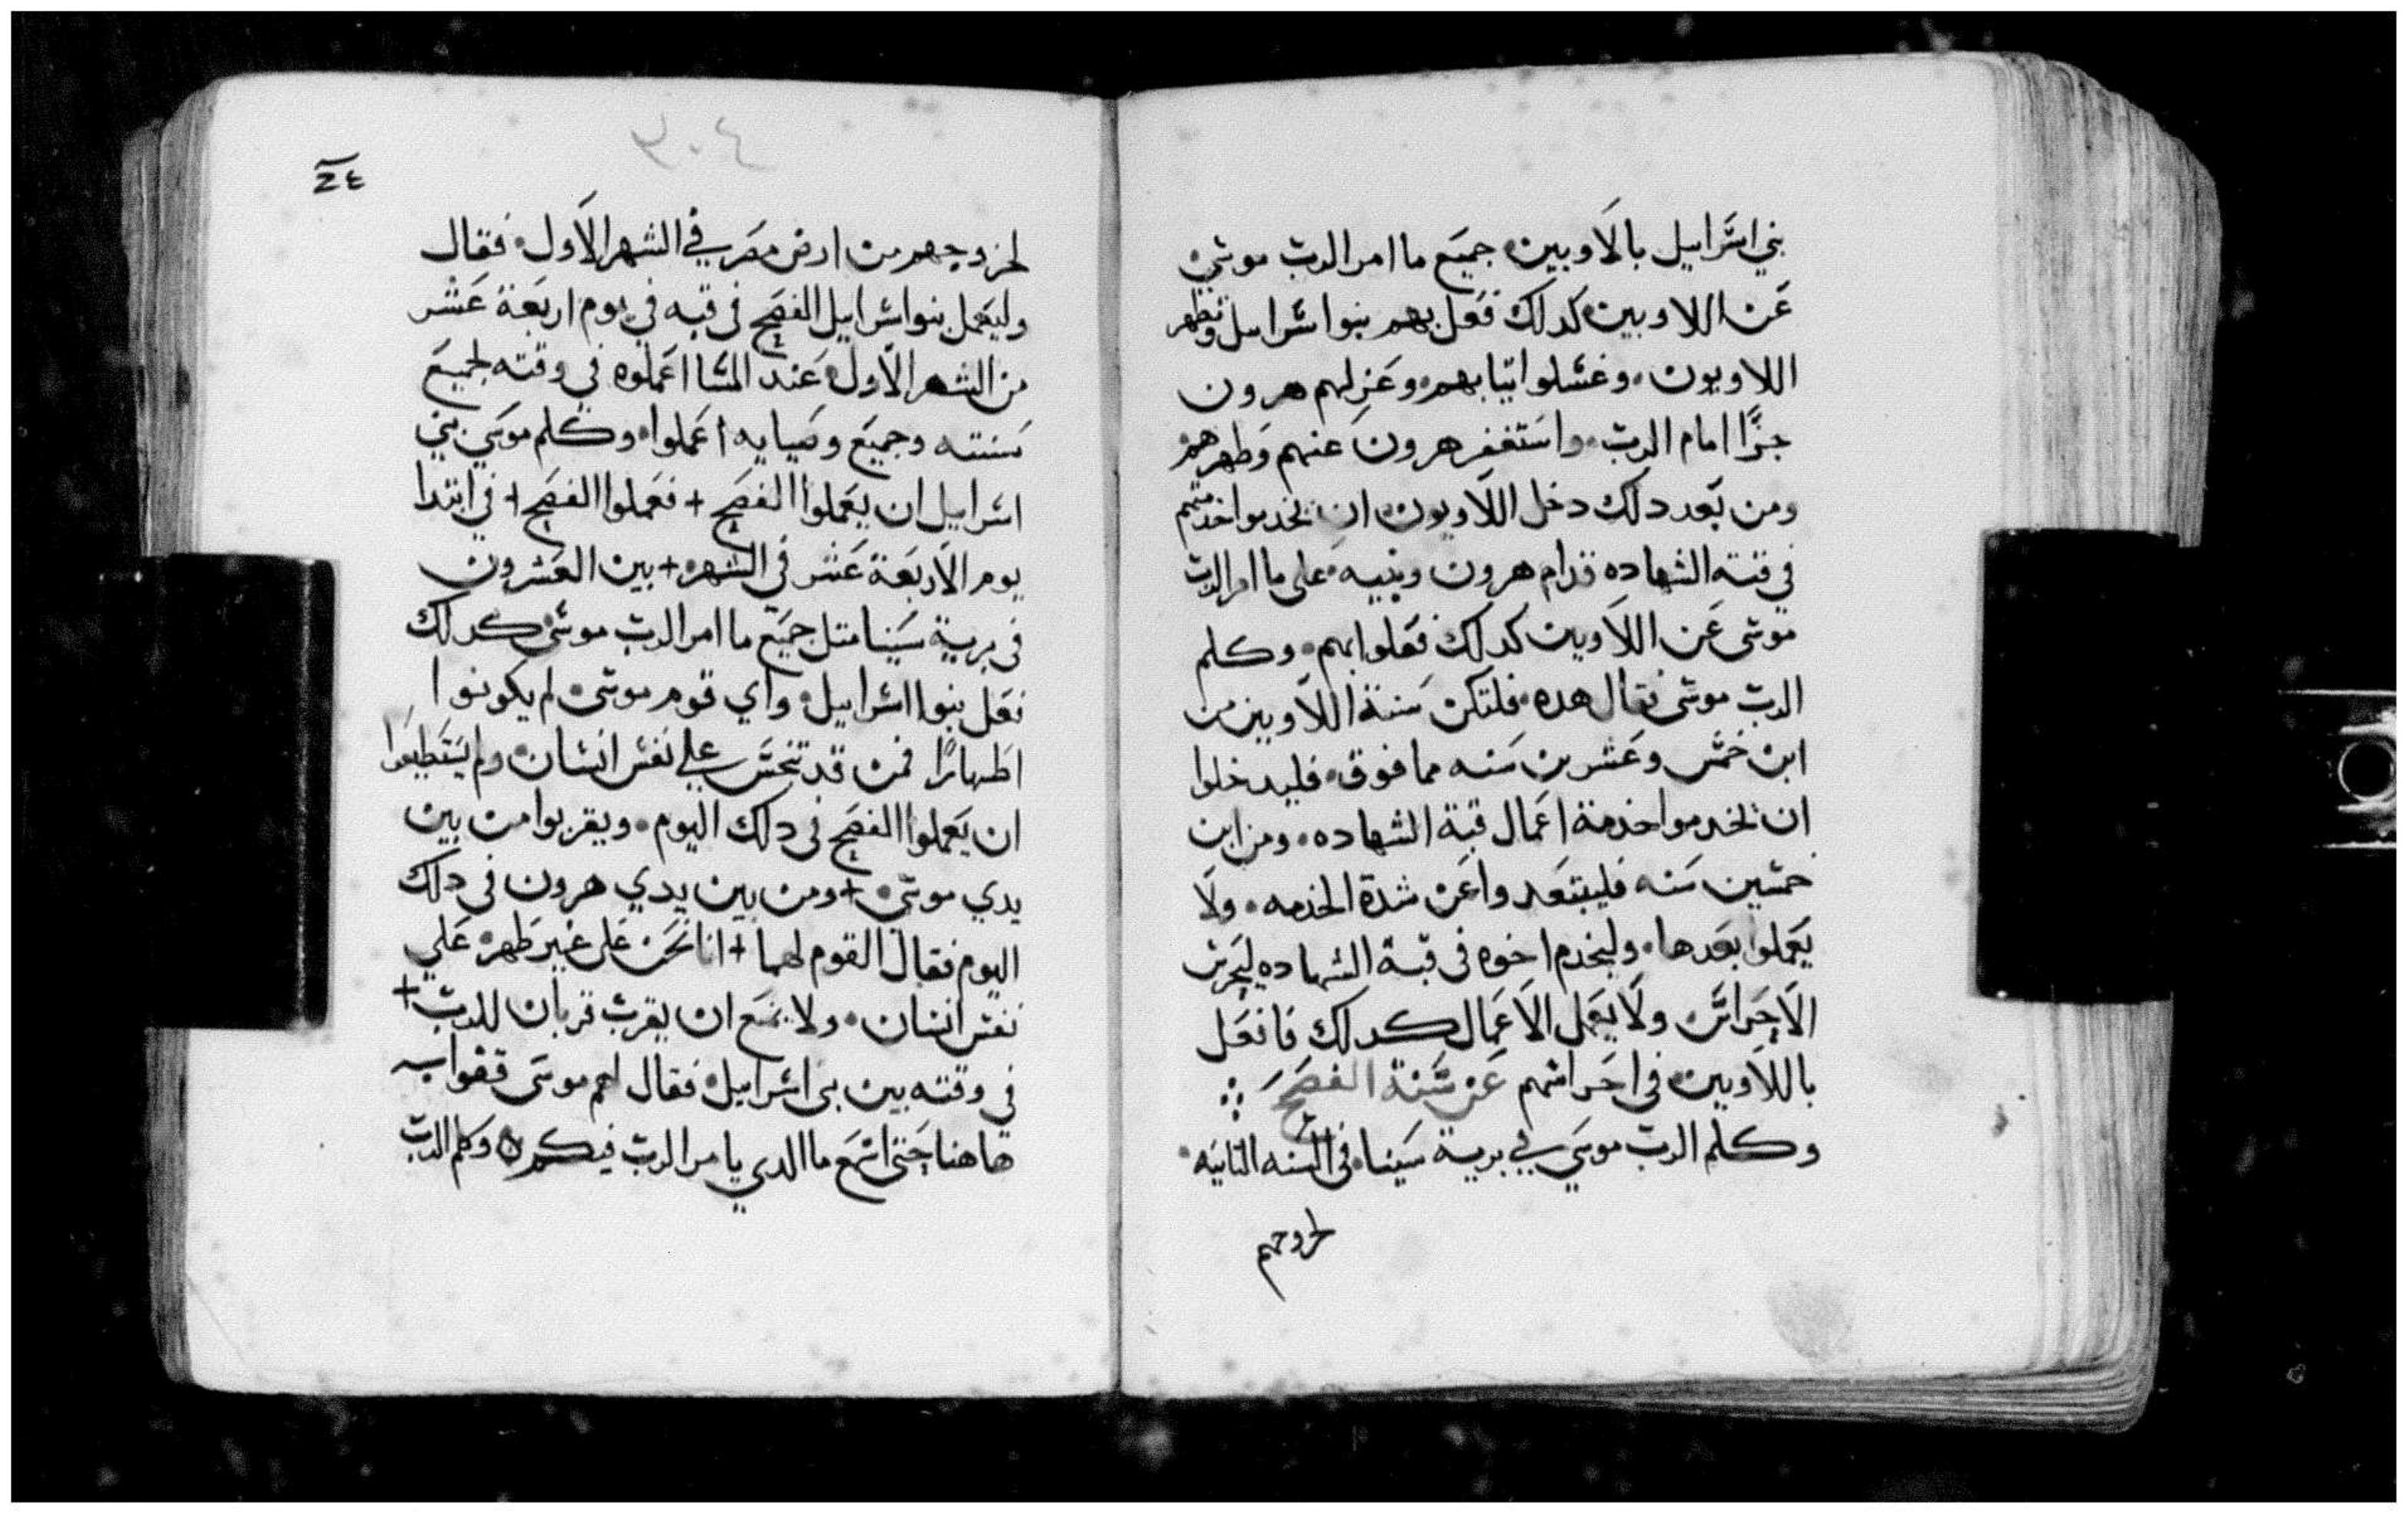 بني اسراييل بالاويين جميع ما امر الرب موسي
عن اللاويين كدلك فعل بهم بنوا اسراييل وتطهر
اللاويون وغسلوا اتيابهم وعزلهم هرون
جزًا امام الرب واستغفر هرون عنهم وطهرهم
ومن بعد دلك دخل اللاويون ان يخدموا خدمتهم
في قبة الشهاده قدام هرون وبنيه على ما امر الرب
موسى عن اللاويين كدلك فعلوا بهم وكلم
الرب موسى فقال هده فلتكن سنة اللاويين من
ابن خمس وعشرين سنه مما فوق فليدخلوا
ان يخدموا خدمة اعمال قبة الشهاده ومن ابن
خمسين سنه فليبتعدوا عن شدة الخدمه ولا
يعملوا بعدها وليخدم اخوه في قبة الشهاده ليحرس
الاحراس ولا يعمل الاعمال كدلك فافعل
باللاويين في احراسهم عن سنة الفصح
وكلم الرب موسي في برية سينا في السنه التانيه
لخروجهم
٣٠٤
لخروجهم من ارض مصر في الشهر الاول فقال
وليعمل بنوا اسراييل الفصح في قبه في يوم اربعة عشر
من الشهر الاول عند المسا اعملوه في وقته لجميع
سنته وجميع وصيايه اعملوا وكلم موسي بني
اسراييل ان يعملوا الفصح + فعملوا الفصح + في ابتدا
يوم الاربعة عشر في الشهر + بين العشرون
في برية سينا متل جميع ما امر الرب موسى كدلك
فعل بنوا اسراييل واي قوم موسى لم يكونوا
اطهارًا فمن قد تنجس علي نفس انسان ولم يستطيعوا
ان يعملوا الفصح في دلك اليوم ويقربوا من بين
يدي موسي + ومن بين يدي هرون في دلك
اليوم فقال القوم لهما + انا نحن على غير طهر علي
نفس انسان ولا يمنع ان يقرب قربان للرب +
في وقته بين بني اسراييل فقال لهم موسى قفوا
هاهنا حتي اسمع ما الدي يامر الرب فيكم وكلم الرب